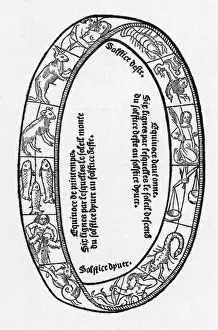 Solstice deste.
Equinoce dautonne.
Six signes par lesquelles le soleil descend
du solstice deste au solstice dyver.
Equinoce de printemps.
Six signes par lesquelles le soleil monte
du solstice dyver au solstice deste.
Solstice dyver.